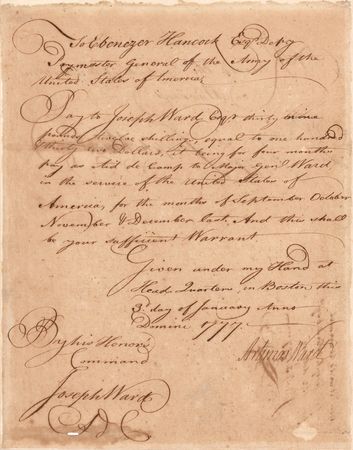 To Ebenezer Hancock Esqr. Depy
Paymaster General of the Army of the
United States of America,
Pay to Joseph Ward Esqr. thirty nine
pounds twelve shillings, equal to one hundred
& thirty two Dollars, it being for four months
pay as Aid de Camp to Major Genl. Ward
in the service of the United States of
America, for the months of September October
November & December last, And this shall
be your sufficient Warrant
Given under my Hand at
Head Quarters in Boston this
3d. day of January Anno
Domini 1777.
By his Honors
Command
Artemas Ward
Joseph Ward